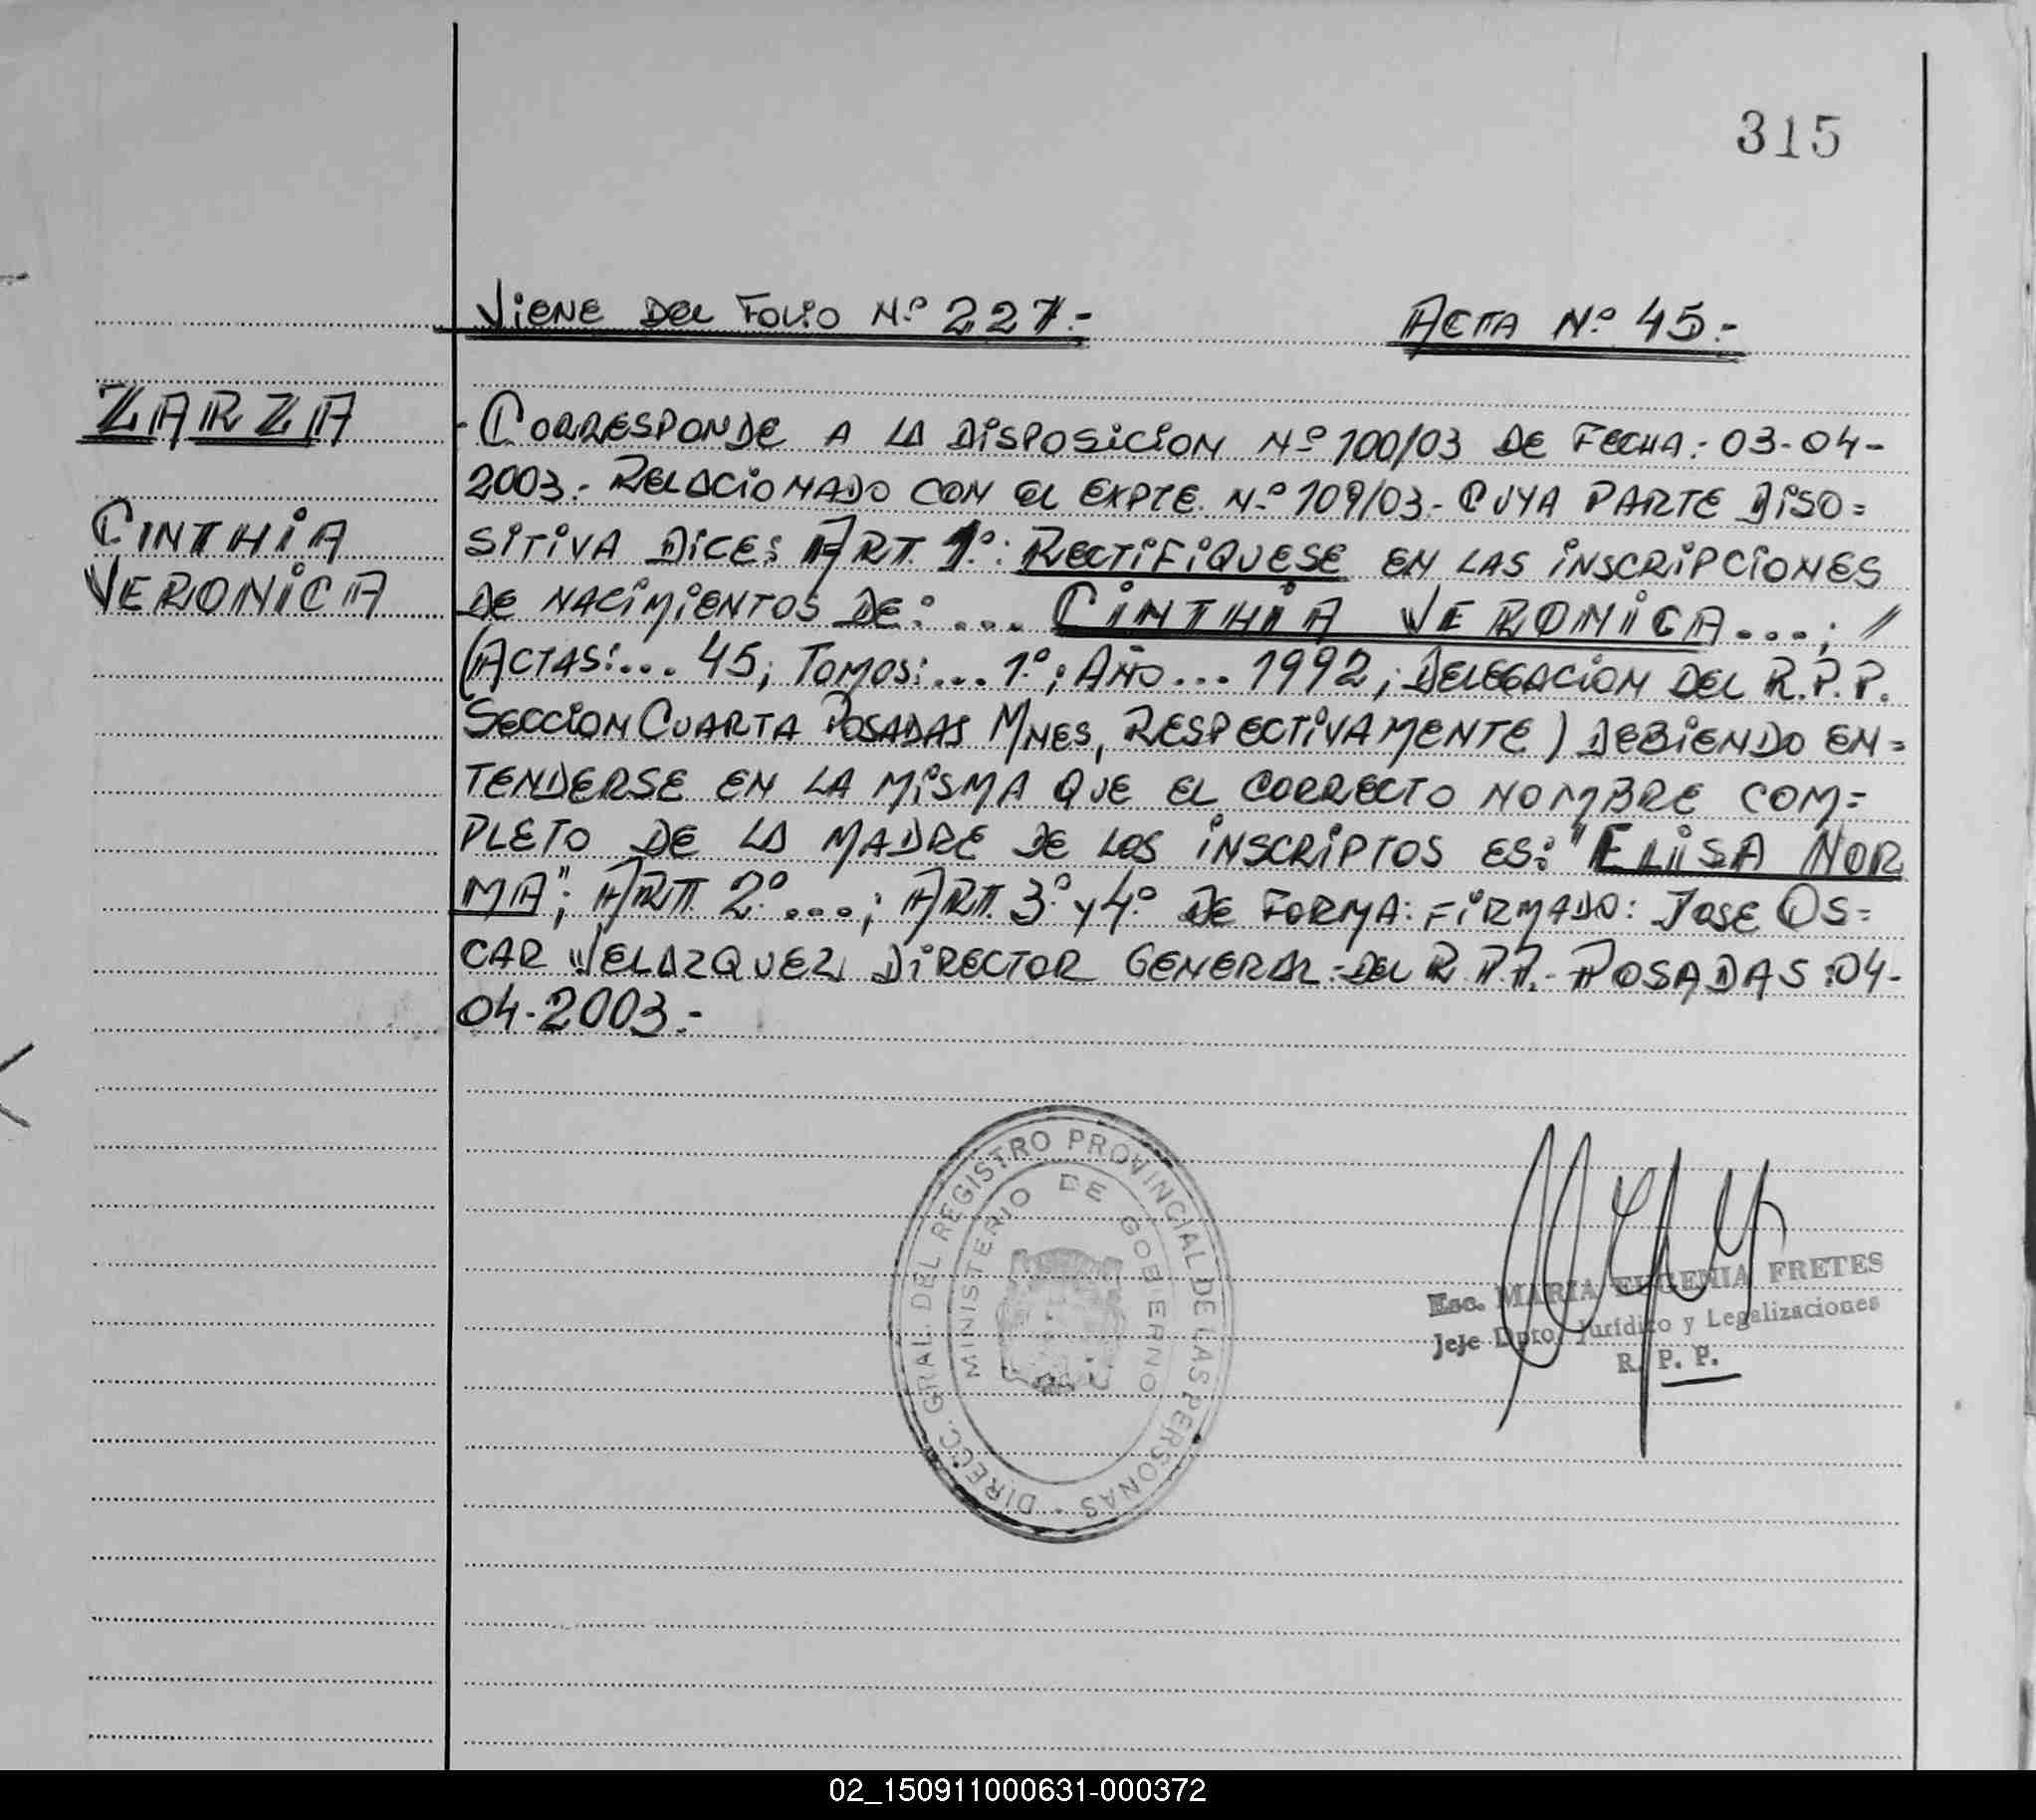 315
VIENE DEL FOLIO Nº 227.-
ACTA Nº 45.-
ZARZA
CINTHIA
VERONICA
-CORRESPONDE A LA DISPOSICION Nº 100/03 DE FECHA: 03-04-
2003.- RELACIONADO CON EL EXPTE. Nº 109/03- CUYA PARTE DISO=
SITIVA DICE: ART. 1º: RECTIFIQUESE EN LAS INSCRIPCIONES
DE NACIMIENTOS DE: ... CINTHIA VERONICA...; /
(ACTAS:... 45; TOMOS:... 1º; AÑO... 1992; DELEGACION DEL R.P.P.
SECCION CUARTA POSADAS MNES, RESPECTIVAMENTE) DEBIENDO EN=
TENDERSE EN LA MISMA QUE EL CORRECTO NOMBRE COM=
PLETO DE LA MADRE DE LOS INSCRIPTOS ES: "ELISA NOR
MA"; ART. 2º...; ART. 3º y 4º DE FORMA: FIRMADO: JOSE OS=
CAR VELAZQUEZ DIRECTOR GENERAL DEL R.P.P.- POSADAS: 04-
04-2003.-
DIRECC. GRAL. DEL REGISTRO PROVINCIAL DE LAS PERSONAS
MINISTERIO DE GOBIERNO
Esc. MARIA EUGENIA FRETES
Jefe Dpto. Jurídico y Legalizaciones
R. P. P.
02_150911000631-000372